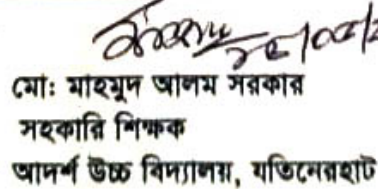 মো: মাহমুদ আলম সরকার
সহকারি শিক্ষক
আদর্শ উচ্চ বিদ্যালয়, যতিনেরহাট